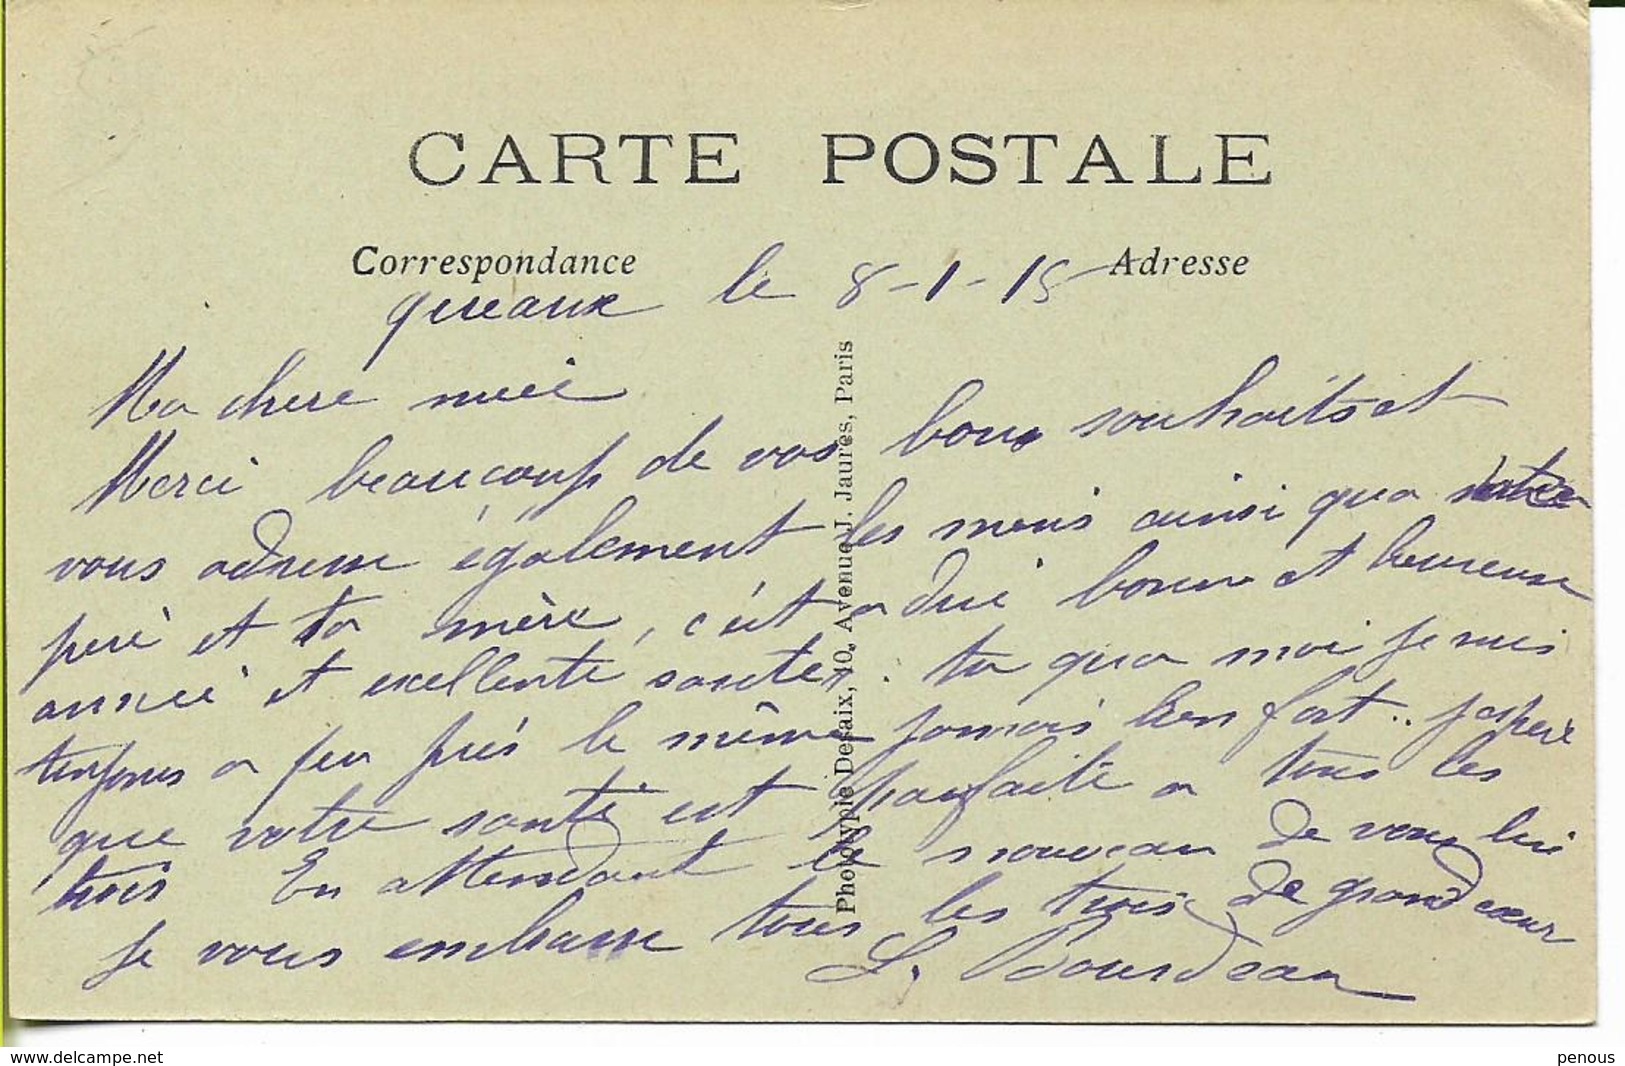 CARTE POSTALE
Correspondance
Adresse
queaux le 8-1-15
Ma chere niece
Merci beaucoup de vos bons souhaits et
vous adresse également les miens ainsi qua votre
pere et ta mère, c'est a dire bonne et heureuse
année et excellente santé. ta qua moi je suis
toujours a peu près le même jamais bien fort.. j'espere
que votre santé est parfaite a tous les
trois En attendant le nouveau de vous lire
je vous embrasse tous les trois de grand cœur
L. Bourdeau
Phototypie Desaix, 40, Avenue J. Jaurès, Paris
www.delcampe.net
penous